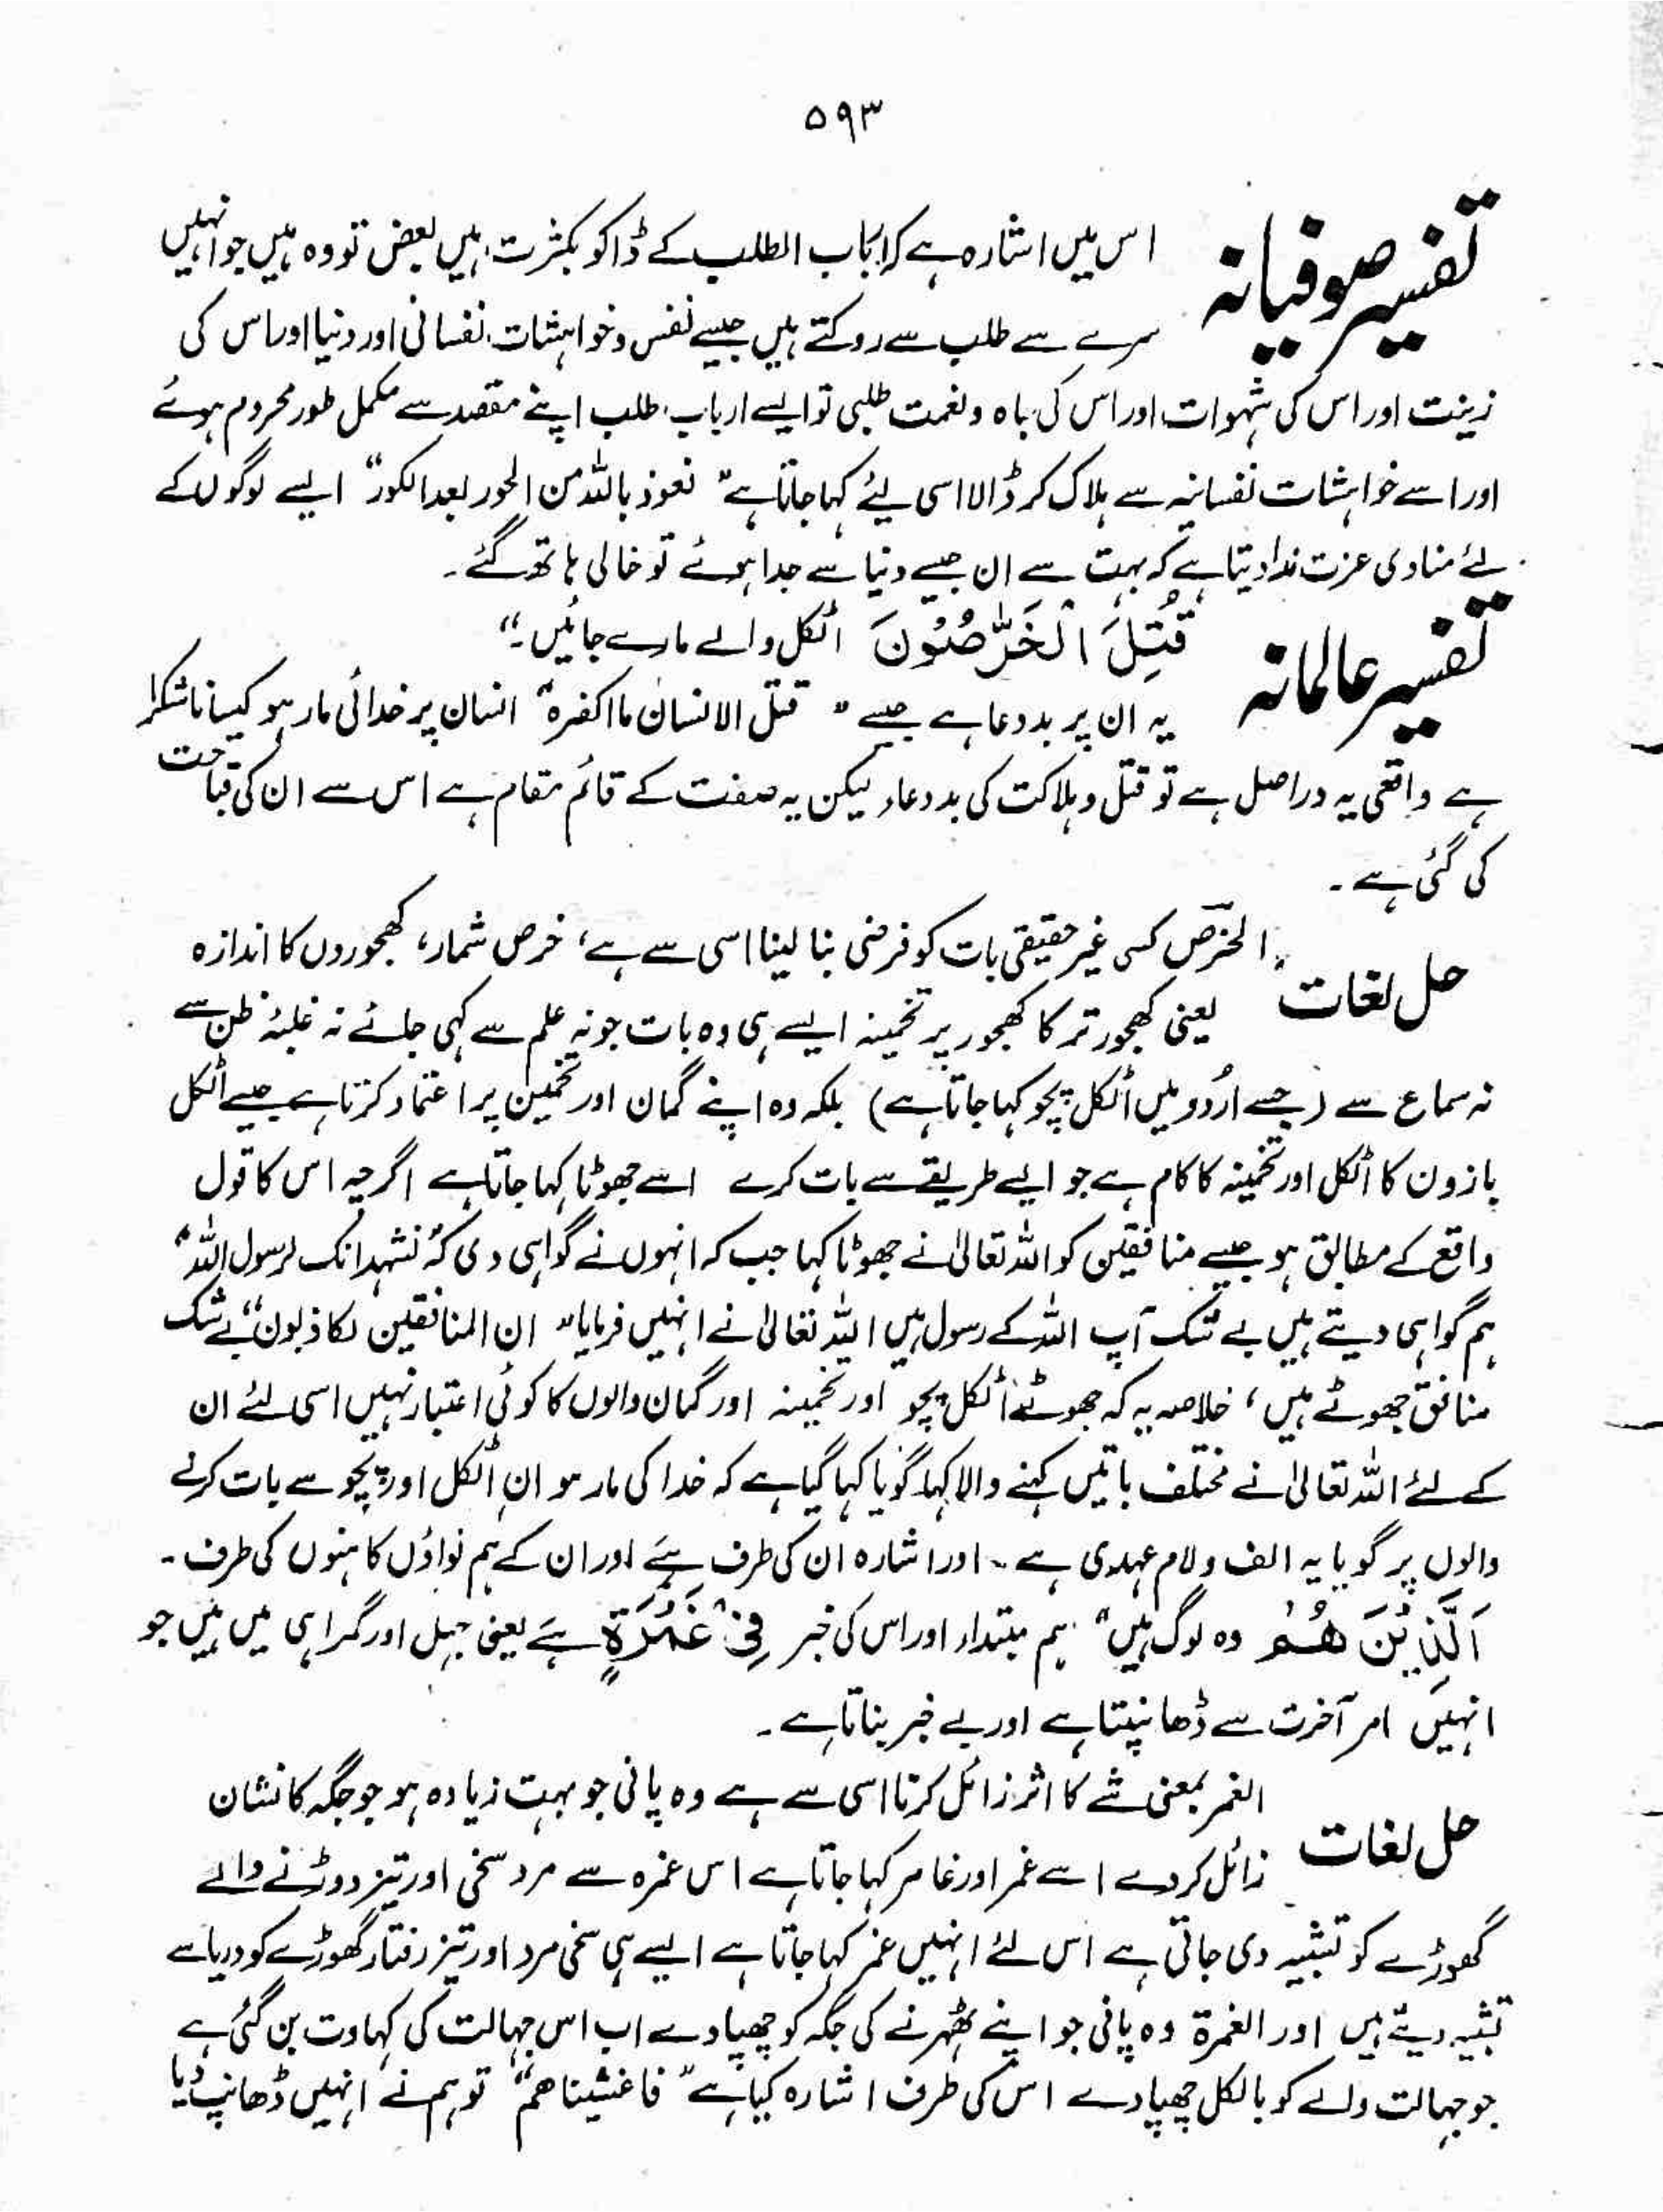 ۵۹۳
تفسیر صوفیانہ
اس میں اشارہ ہے کہ ارباب الطلب کے ڈاکو بکثرت ہیں بعض تو وہ ہیں جو انہیں
سرے سے طلب سے روکتے ہیں جیسے نفس و خواہشات نفسانی اور دنیا اور اس کی
زینت اور اس کی شہوات اور اس کی باہ و نعمت طلبی تو ایسے ارباب طلب اپنے مقصد سے مکمل طور محروم ہوئے
اور اسے خواہشات نفسانیہ سے ہلاک کر ڈالا اسی لیئے کہا جاتا ہے "نعوذ باللہ من الحور بعد الکور" ایسے لوگوں کے
لیئے منادی عزت ندا دیتا ہے کہ بہت سے ان جیسے دنیا سے جدا ہوئے تو خالی ہاتھ گئے۔
تفسیر عالمانہ
قُتِلَ الْخَرّٰصُوْنَ اٹکل والے مارے جائیں۔"
یہ ان پر بددعا ہے جیسے "قتل الانسان ما اکفرہ" انسان پر خدائی مار ہو کیسا ناشکرا
ہے واقعی یہ دراصل ہے تو قتل و ہلاکت کی بددعاء لیکن یہ صفت کے قائم مقام ہے اس سے ان کی قباحت
کی گئی ہے۔
حل لغات
الخرّص کسی غیر حقیقی بات کو فرضی بنا لینا اسی سے ہے، خرص شمار، کھجوروں کا اندازہ
یعنی کھجور تر کا کھجور پر تخمینہ ایسے ہی وہ بات جو نہ علم سے کہی جائے نہ غلبۂ ظن سے
نہ سماع سے (جسے اردو میں اٹکل پچو کہا جاتا ہے) بلکہ وہ اپنے گمان اور تخمین پر اعتماد کرتا ہے جیسے اٹکل
بازون کا اٹکل اور تخمینہ کا کام ہے جو ایسے طریقے سے بات کرے اسے جھوٹا کہا جاتا ہے اگرچہ اس کا قول
واقع کے مطابق ہو جیسے منافقین کو اللہ تعالیٰ نے جھوٹا کہا جب کہ انہوں نے گواہی دی کہ "نشہد انک لرسول اللہ"
ہم گواہی دیتے ہیں بے شک آپ اللہ کے رسول ہیں اللہ تعالیٰ نے انہیں فرمایا "ان المنافقین لکاذبون" بے شک
منافق جھوٹے ہیں، خلاصہ یہ کہ جھوٹے اٹکل پچو اور تخمینہ اور گمان والوں کا کوئی اعتبار نہیں اسی لئے ان
کے لئے اللہ تعالیٰ نے مختلف باتیں کہنے والا کہا گویا کہا گیا ہے کہ خدا کی مار ہو ان اٹکل اور پچو سے بات کرنے
والوں پر گویا یہ الف و لام عہدی ہے۔ اور اشارہ ان کی طرف ہے اور ان کے ہم نواؤں کاہنوں کی طرف۔
اَلَّذِیْنَ هُمْ وہ لوگ ہیں" ہم مبتداء اور اس کی خبر فِیْ غَمْرَةٍ ہے یعنی جہل اور گمراہی میں ہیں جو
انہیں امر آخرت سے ڈھانپتا ہے اور بے خبر بناتا ہے۔
حل لغات
الغمر بمعنی شے کا اثر زائل کرنا اسی سے ہے وہ پانی جو بہت زیادہ ہو جو جگہ کا نشان
زائل کردے اسے غمر اور غامر کہا جاتا ہے اس غمرہ سے مرد سخی اور تیز دوڑنے والے
گھوڑے کو تشبیہ دی جاتی ہے اس لئے انہیں غمر کہا جاتا ہے ایسے ہی سخی مرد اور تیز رفتار گھوڑے کو دریا سے
تشبیہ دیتے ہیں اور الغمرة وہ پانی جو اپنے ٹھہرنے کی جگہ کو چھپا دے اب اس جہالت کی کہاوت بن گئی ہے
جو جہالت والے کو بالکل چھپا دے اس کی طرف اشارہ کیا ہے "فاغشیناھم" تو ہم نے انہیں ڈھانپ دیا